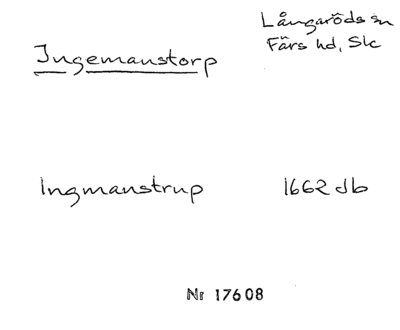 Ingemanstorp
Långaröds sn
Färs hd, Skc
Ingmanstrup 1662 Jb
Nr 17608